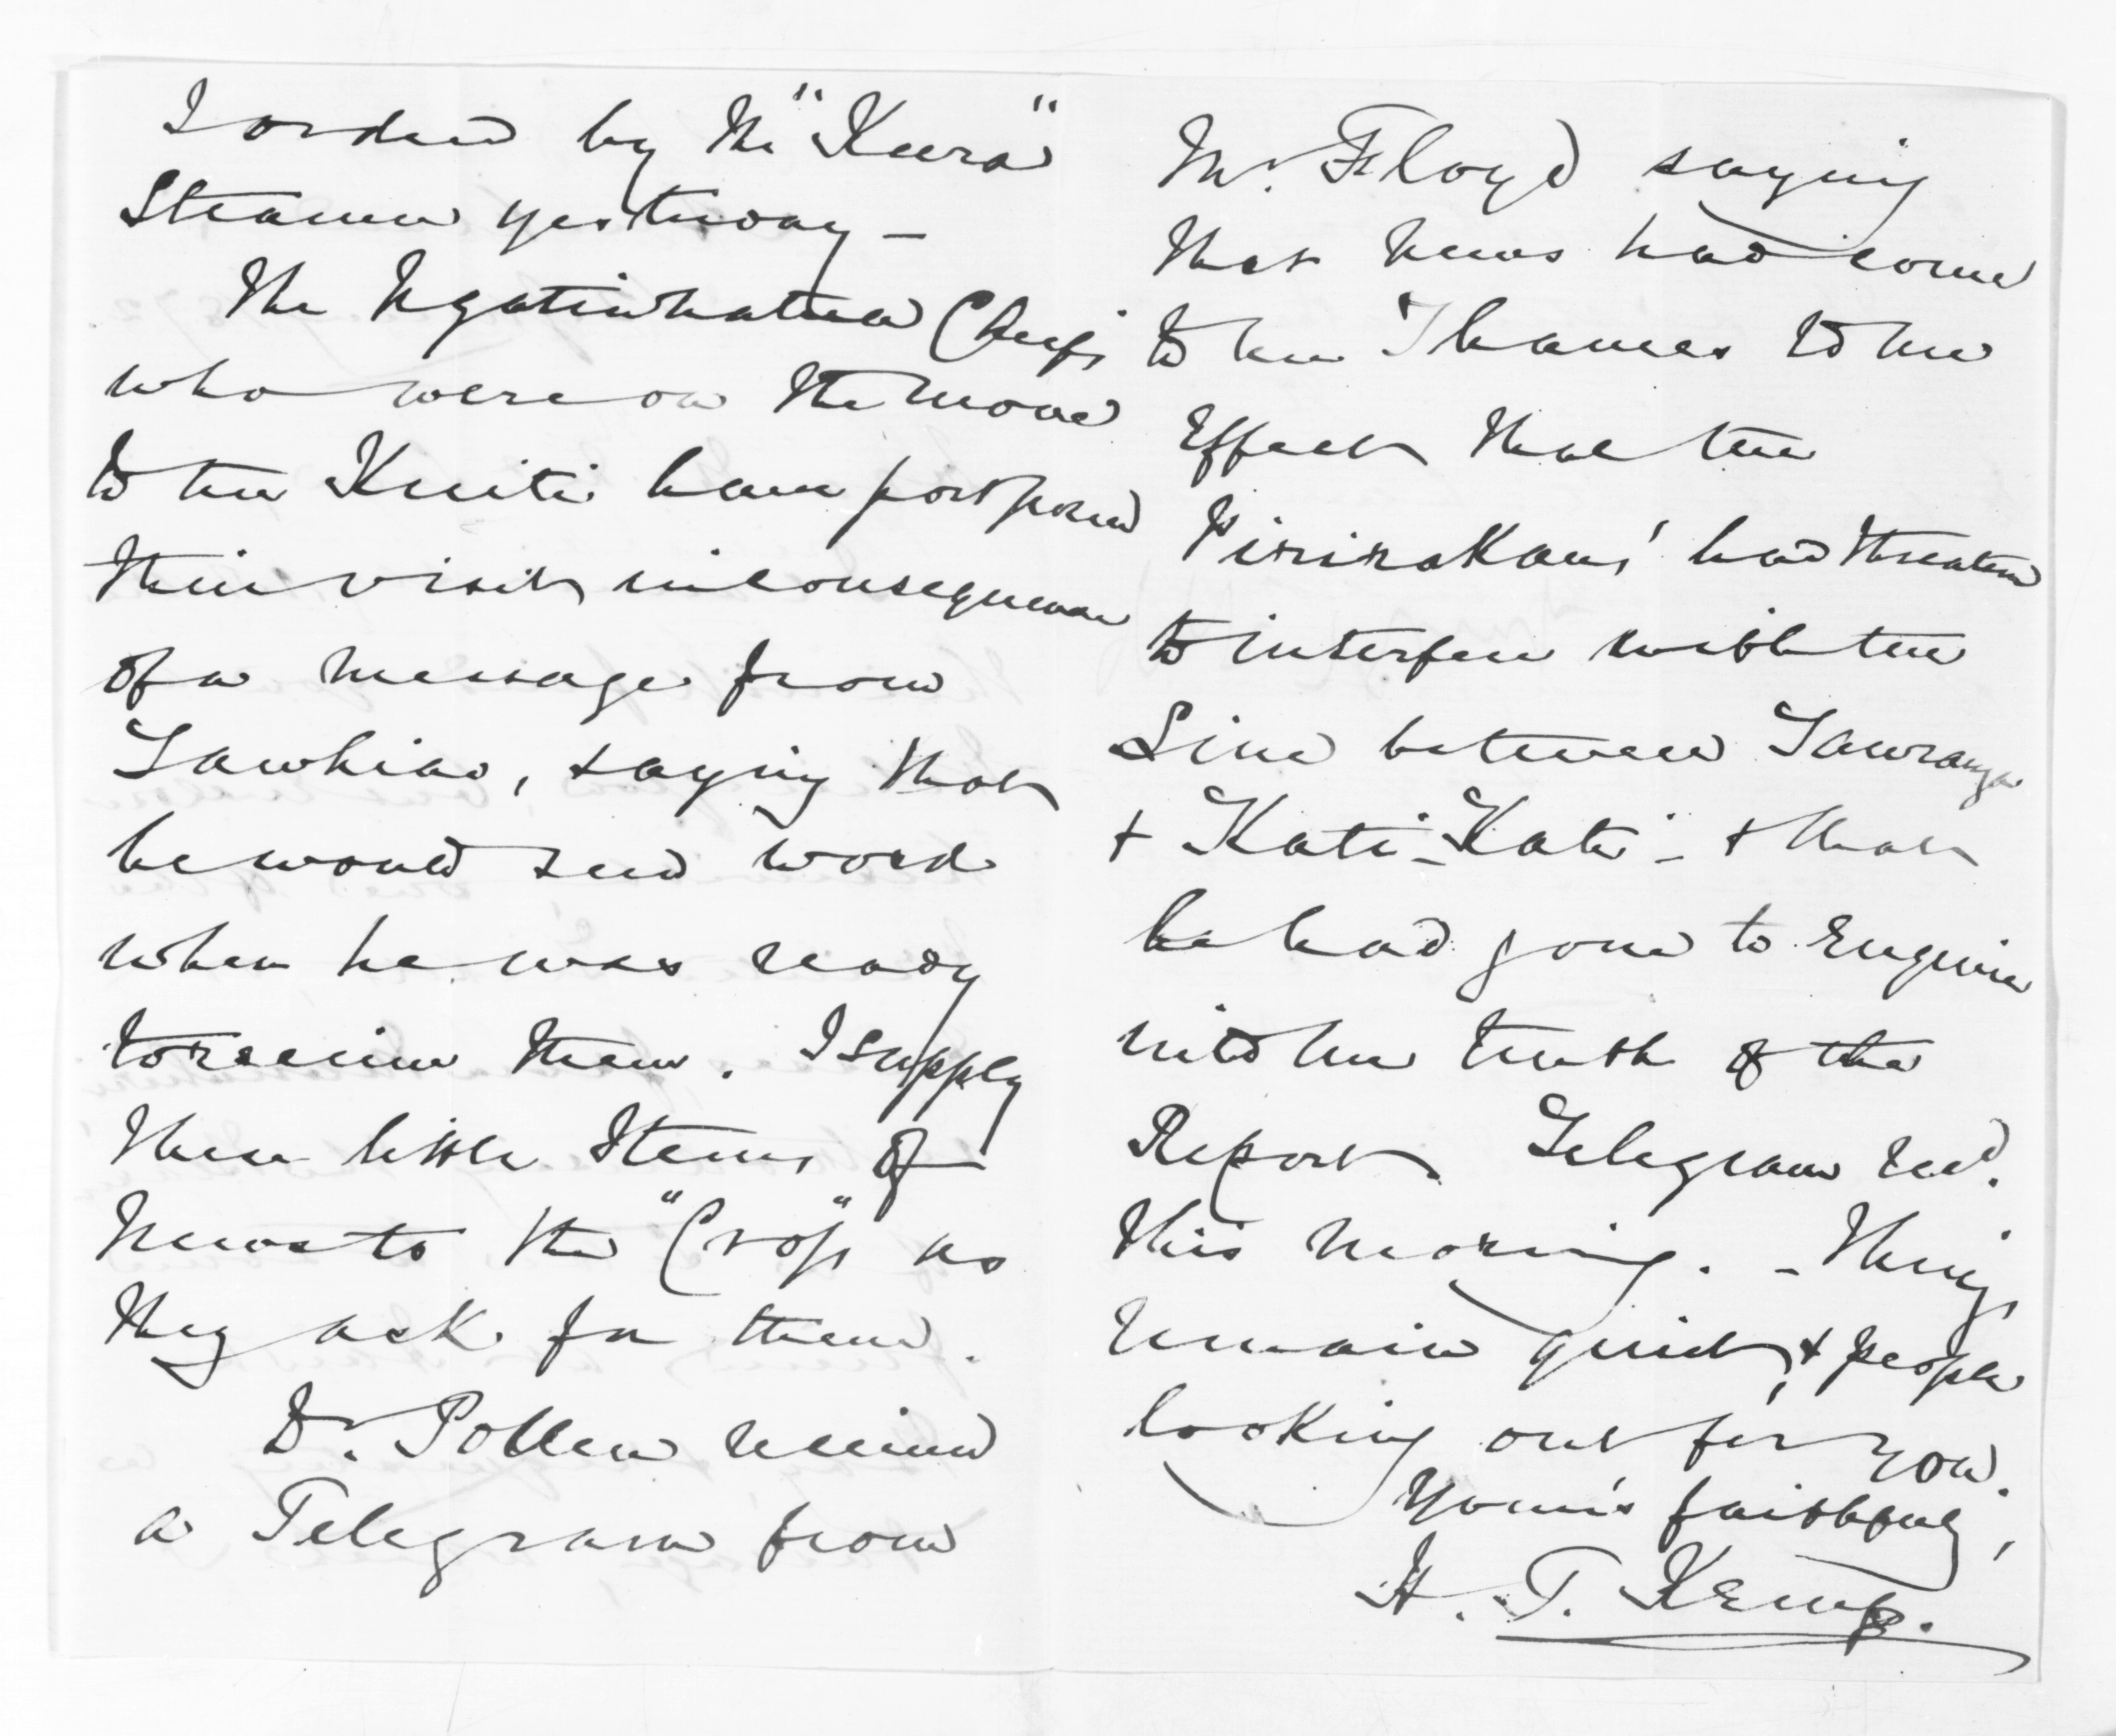 I ordered by the "Keera"
Steamer yesterday –
The Ngatiwhatua Chiefs
who were on the move
to the Kuiti have postponed
their visit in consequence
of a message from
Tawhiao, saying that
he would send word
when he was ready
to receive them. I supply
these little Items of
News to the "Cross" as
they ask for them.
Dr. Pollen received
a Telegram from
Mr. Floyd saying
that news had come
to the Thames to the
Effect that the
Pirirakaus' had threatened
to interfere with the
Line between Tauranga
+ Kati-Kati – + that
he had gone to Enquire
into the truth of the
Report. Telegram recd.
this morning. – Things
remain quiet, + people
looking out for you.
Yours faithfully,
H. T. Kemp.